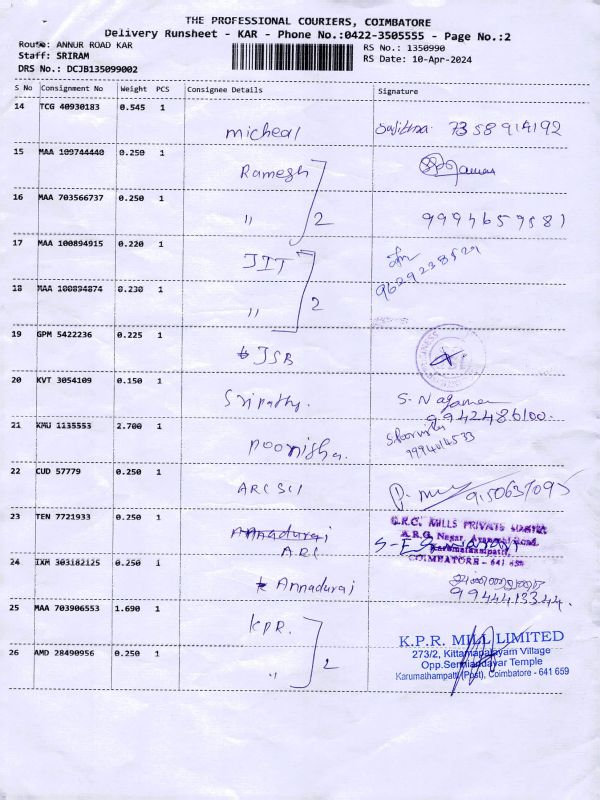 THE PROFESSIONAL COURIERS, COIMBATORE
Delivery Runsheet - KAR - Phone No.:0422-3505555 - Page No.:2
Route: ANNUR ROAD KAR
RS No.: 1350990
Staff: SRIRAM
RS Date: 10-Apr-2024
DRS No.: DCJB135099002
S No Consignment No Weight PCS Consignee Details Signature
14 TCG 40930183 0.545 1
micheal 7358914192
15 MAA 109744440 0.250 1
Ramesh
16 MAA 703566737 0.250 1
" 2 9994659581
17 MAA 100894915 0.220 1
JIT
9629238529
18 MAA 100894874 0.230 1
" 2
19 GPM 5422236 0.225 1
JSB
20 KVT 3054109 0.150 1
Sripathy. S. Nagaman
9942486100.
21 KMU 1135553 2.700 1
Poornisha. 9994014533
22 CUD 57779 0.250 1
ARC SCI 9150637095
23 TEN 7721933 0.250 1
Annadurai
ARC
G.R.C. MILLS PRIVATE LIMITED
A.R.G. Nagar,
Karumathampatti,
COIMBATORE - 641 659
24 IXM 303182125 0.250 1
Annadurai
9944413344.
25 MAA 703906553 1.690 1
KPR.
K.P.R. MILL LIMITED
273/2, Kittampalayam Village
Opp.Senniandavar Temple
Karumathampatti (Post), Coimbatore - 641 659
26 AMD 28490956 0.250 1
" 2